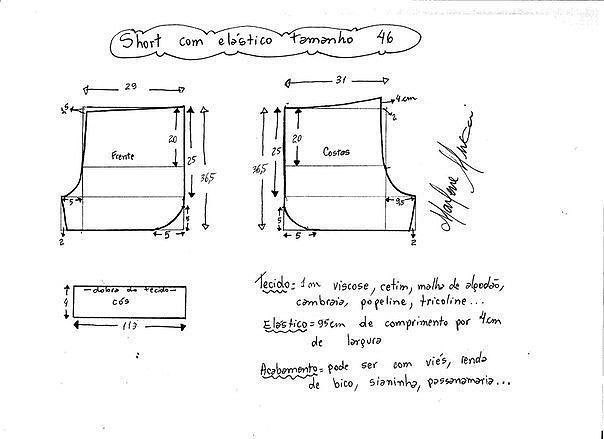 Short com elástico tamanho 46
29
5
20
25
36,5
Frente
5
2
5
5
31
4 cm
2
20
25
36,5
Costas
9,5
2
5
5
Marlene Mukai
dobra do tecido
cós
4
113
Tecido = 1m viscose, cetim, malha de algodão,
cambraia, popeline, tricoline...
Elástico = 95cm de comprimento por 4cm
de largura
Acabamento = pode ser com viés, renda
de bico, sianinha, passanamaria...